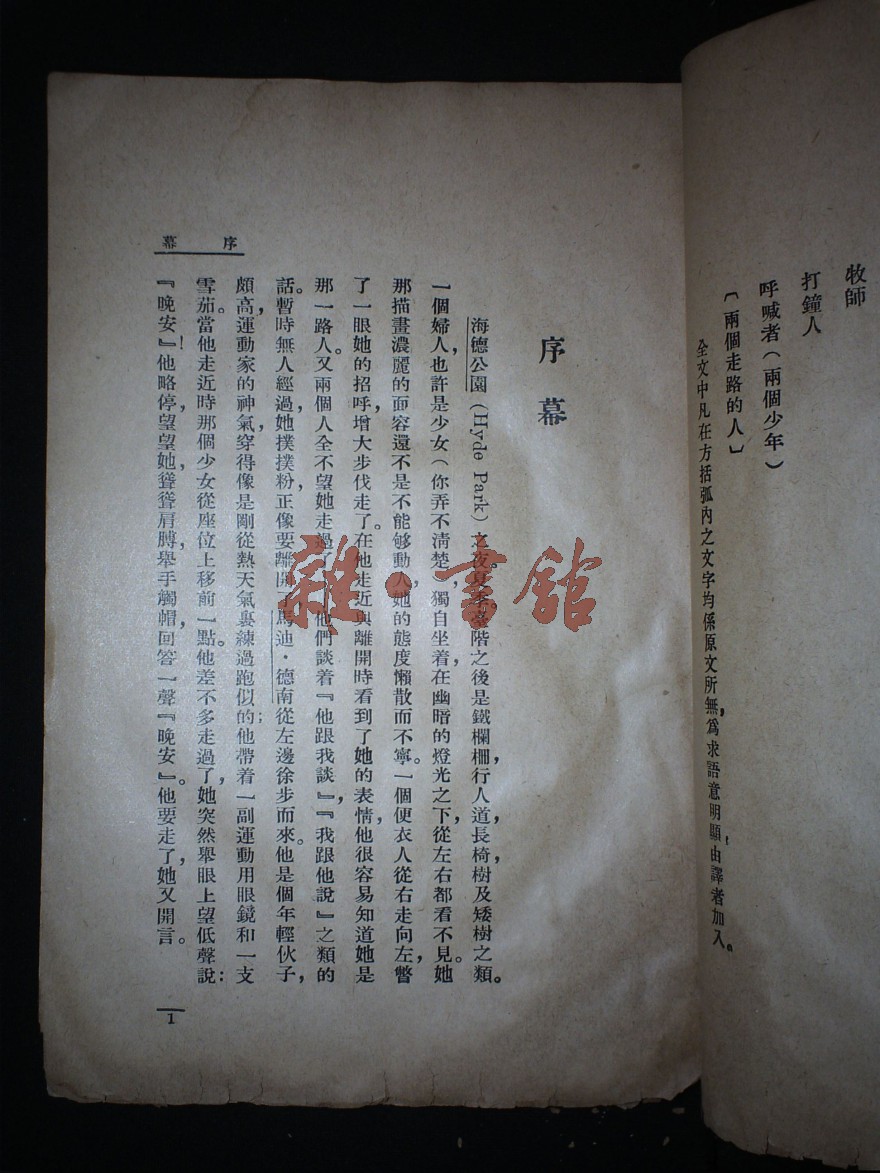 牧師
打鐘人
呼喊者(兩個少年)
〔兩個走路的人〕
全文中凡在方括弧內之文字均係原文所無,爲求語意明顯,由譯者加入。
序幕
序幕
海德公園(Hyde Park)之夜。夏季。臺階之後是鐵欄柵,行人道,長椅,樹及矮樹之類。
一個婦人,也許是少女(你弄不清楚),獨自坐着,在幽暗的燈光之下,從左右都看不見。她
那描畫濃麗的面容還不是不能够動人,她的態度懶散而不寧。一個便衣人從右走向左,瞥
了一眼她的招呼,增大步伐走了。在他走近與離開時看到了她的表情,他很容易知道她是
那一路人。又兩個人全不望她走過了,他們談着『他跟我談』,『我跟他說』之類的
話。暫時無人經過,她撲撲粉,正像要離開了。馬迪·德南從左邊徐步而來。他是個年輕伙子,
頗高,運動家的神氣,穿得像是剛從熱天氣裏練過跑似的;他帶着一副運動用眼鏡和一支
雪茄。當他走近時,那個少女從座位上移前一點。他差不多走過了,她突然舉眼上望,低聲說:
『晚安!』他略停,望望她,聳聳肩膊,舉手觸帽,回答一聲『晚安』。他要走了,她又開言。
1
雜·書舘